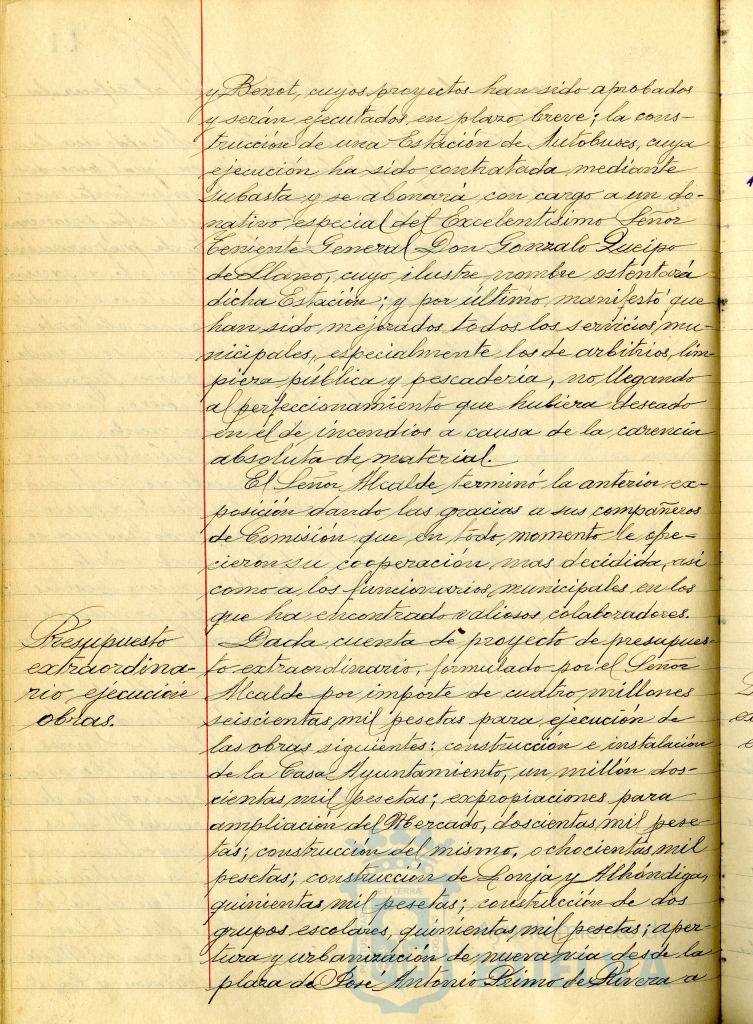 y Benot, cuyos proyectos han sido aprobados
y serán ejecutados en plazo breve; la cons-
trucción de una Estación de Autobuses, cuya
ejecución ha sido contratada mediante
subasta y se abonará con cargo a un do-
nativo especial del Excelentísimo Señor
Teniente General Don Gonzalo Queipo
de Llano, cuyo ilustre nombre ostentará
dicha Estación; y por último, manifestó que
han sido mejorados todos los servicios mu-
nicipales, especialmente los de arbitrios, lim-
pieza pública y pescadería, no llegando
al perfeccionamiento que hubiera deseado
en el de incendios a causa de la carencia
absoluta de material.
El Señor Alcalde terminó la anterior ex-
posición dando las gracias a sus compañeros
de Comisión que en todo momento le ofre-
cieron su cooperación mas decidida, así
como a los funcionarios municipales en los
que ha encontrado valiosos colaboradores.
Presupuesto
extraordina-
rio, ejecución
obras.
Dada cuenta de proyecto de presupues-
to extraordinario, formulado por el Señor
Alcalde por importe de cuatro millones
seiscientas mil pesetas para ejecución de
las obras siguientes: construcción e instalación
de la Casa Ayuntamiento, un millón dos-
cientas mil pesetas; expropiaciones para
ampliación del Mercado, doscientas mil pese-
tas; construcción del mismo, ochocientas mil
pesetas; construcción de Lonja y Alhóndiga,
quinientas mil pesetas; construcción de dos
grupos escolares, quinientas mil pesetas; aper-
tura y urbanización de nueva vía desde la
plaza de José Antonio Primo de Rivera a
ET TERRÆ
Ayuntamiento de
HUELVA